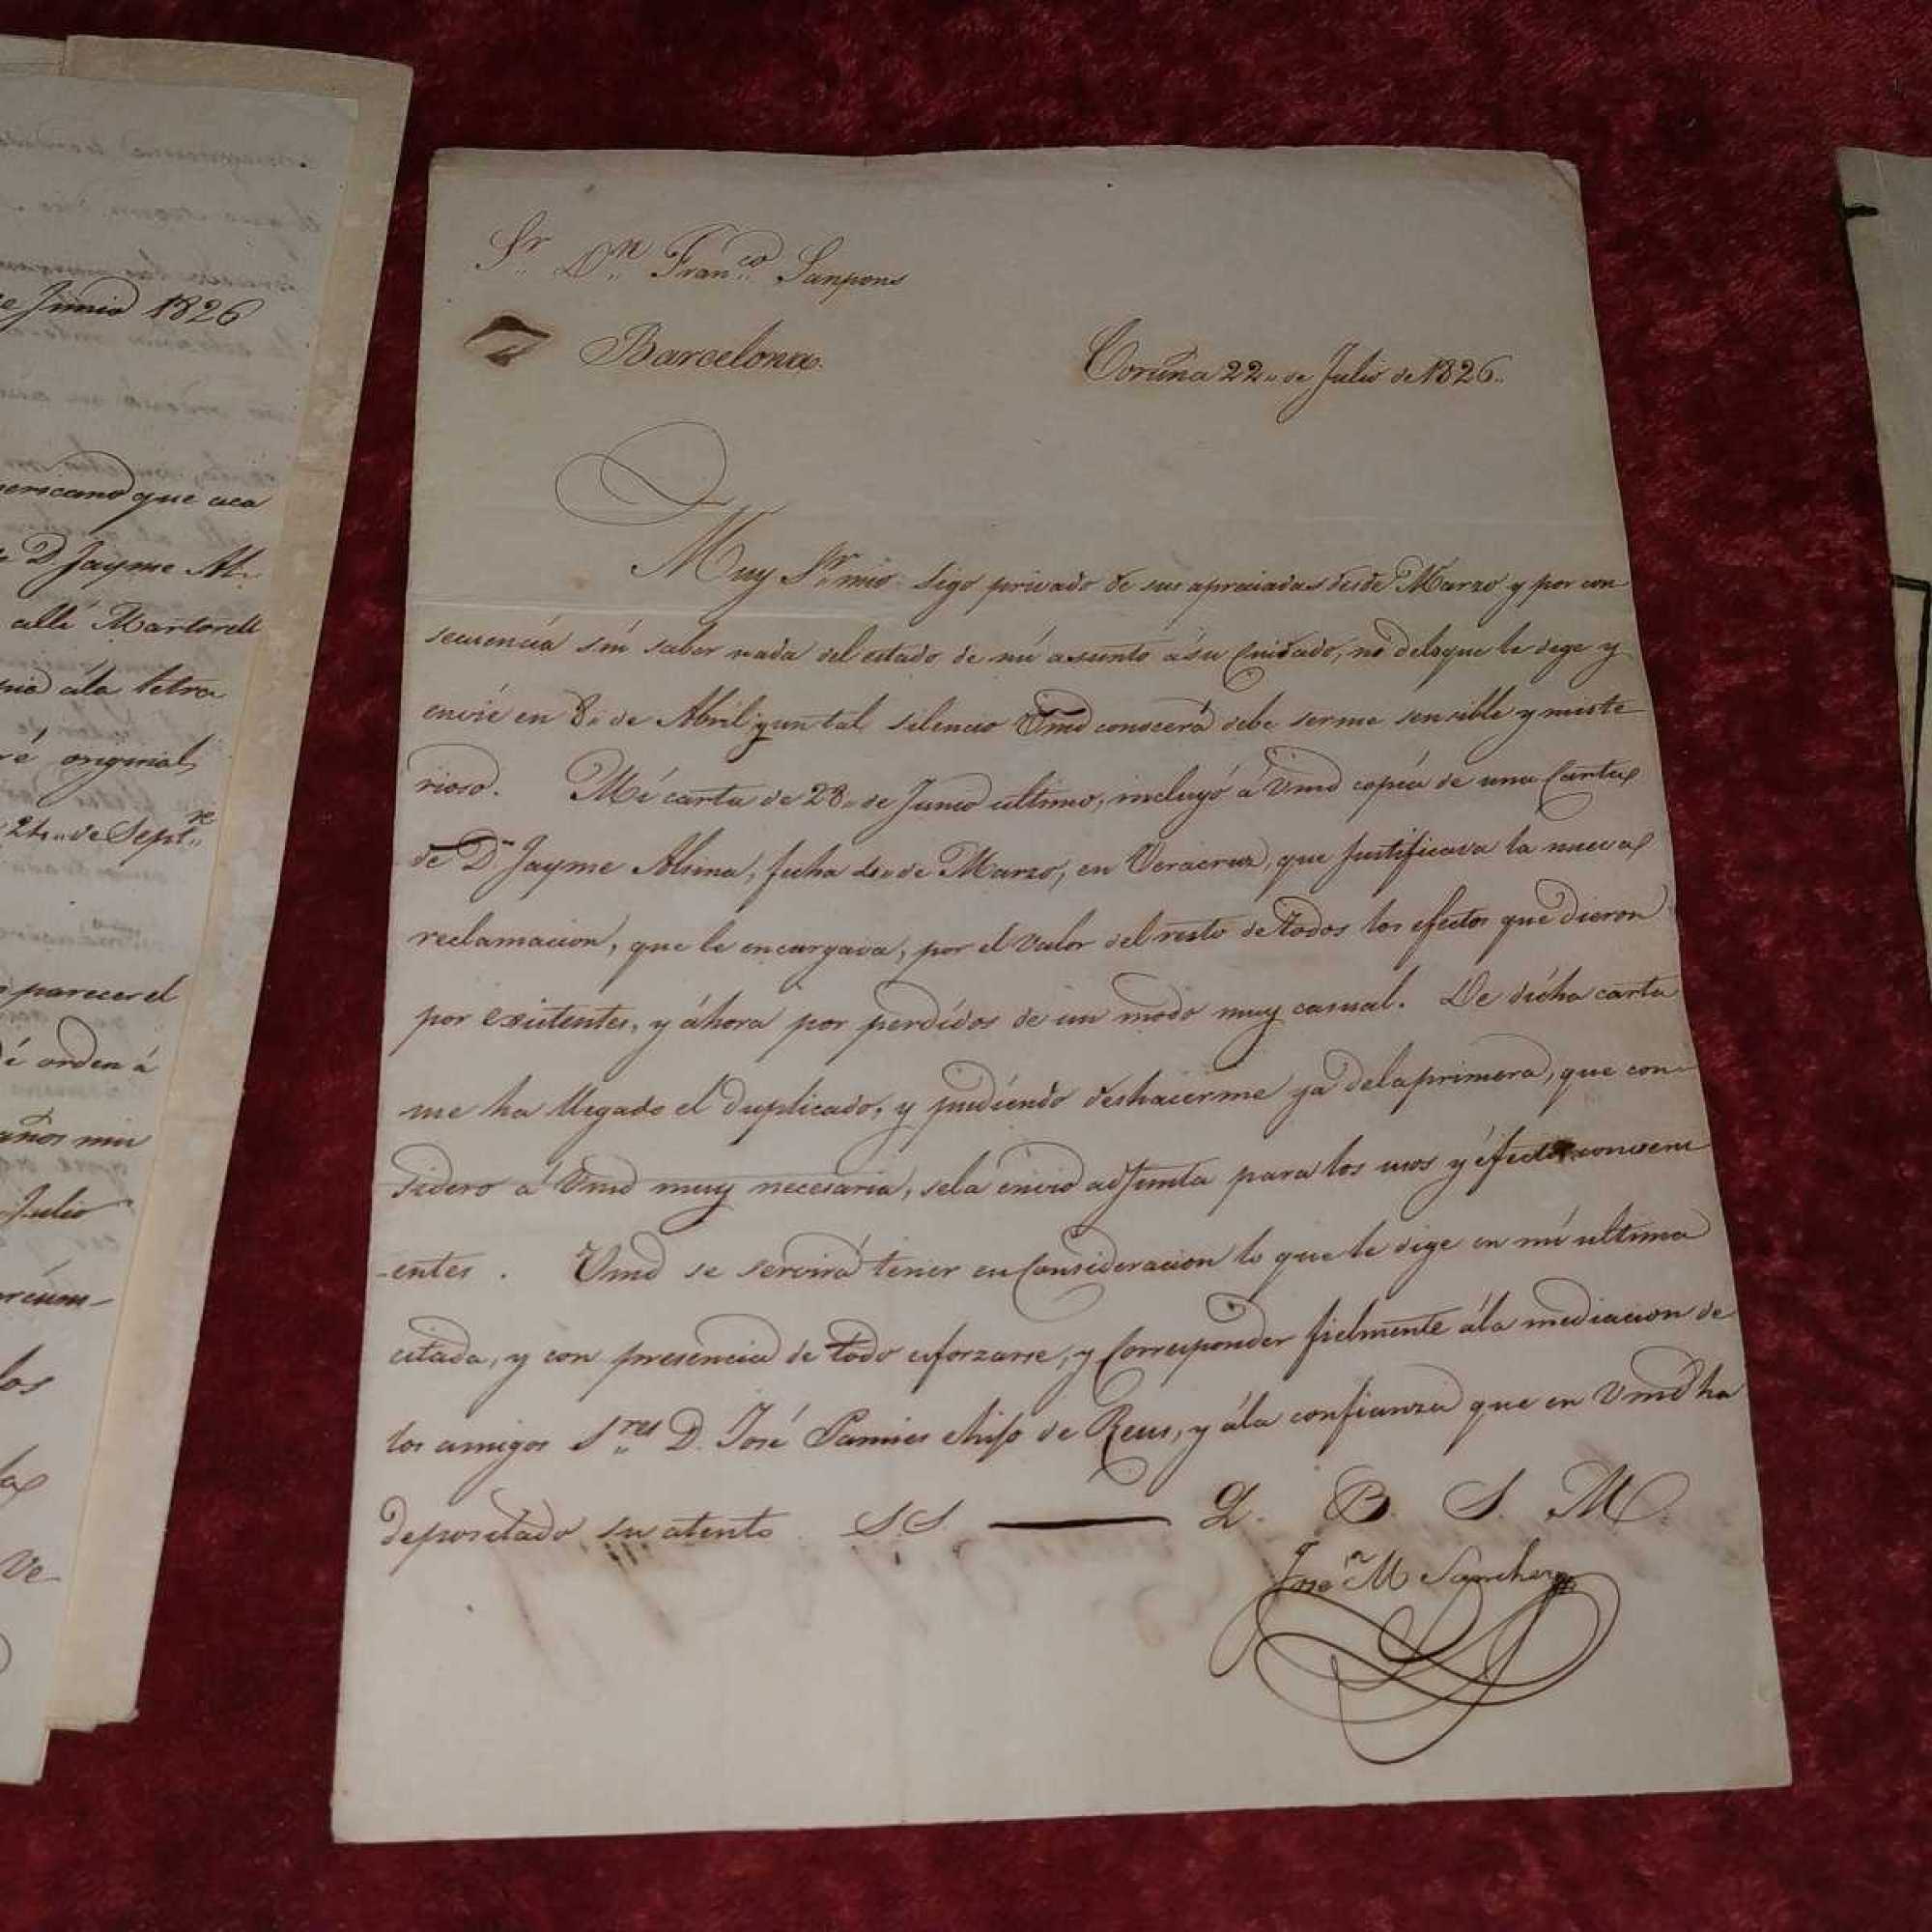 e Junio 1826
ericano que aca
D Jayme Al-
alli Martorell
ala letra
ré original,
24,, de Sept.re
parecer el
é orden á
años min
Julio
los
Ve-
Sr. Dn. Franco. Sanpons
Barcelona.
Coruña 22,, de Julio de 1826..
Muy Sr. mio. Sigo privado de sus apreciadas desde Marzo y por con
secuencia sin saber nada del estado de mi asunto ásu Cuidado, no deloque le dige y
envie en 8,, de Abril y un tal silencio Vmd conocerá debe serme sensible y miste
rioso. Mi carta de 28,, de Junio ultimo, incluyó á Vmd copia de una Carta
de Dn Jayme Alsina, fecha de Marzo, en Veracruz, que Justificava la nueva
reclamacion, que le encargava, por el valor del resto de todos los efectos que dieron
por existentes, y áhora por perdidos de un modo muy casual. De dicha carta
me ha llegado el duplicado, y pudiendo deshacerme ya dela primera, que con-
sidero á Vmd muy necesaria, sela énvio adjunta para los usos y éfectos conveni
-entes. Vmd se servirá tener en Consideracion lo que le dige en mi ultima
citada, y con presencia de todo esforzarse, y Corresponder fielmente ála mediacion de
los amigos Sres D. José Pamies éhijo de Reus, y ála confianza que en Vmd ha
depositado su atento S.S. Q. B. S. M.
José M Sanchez